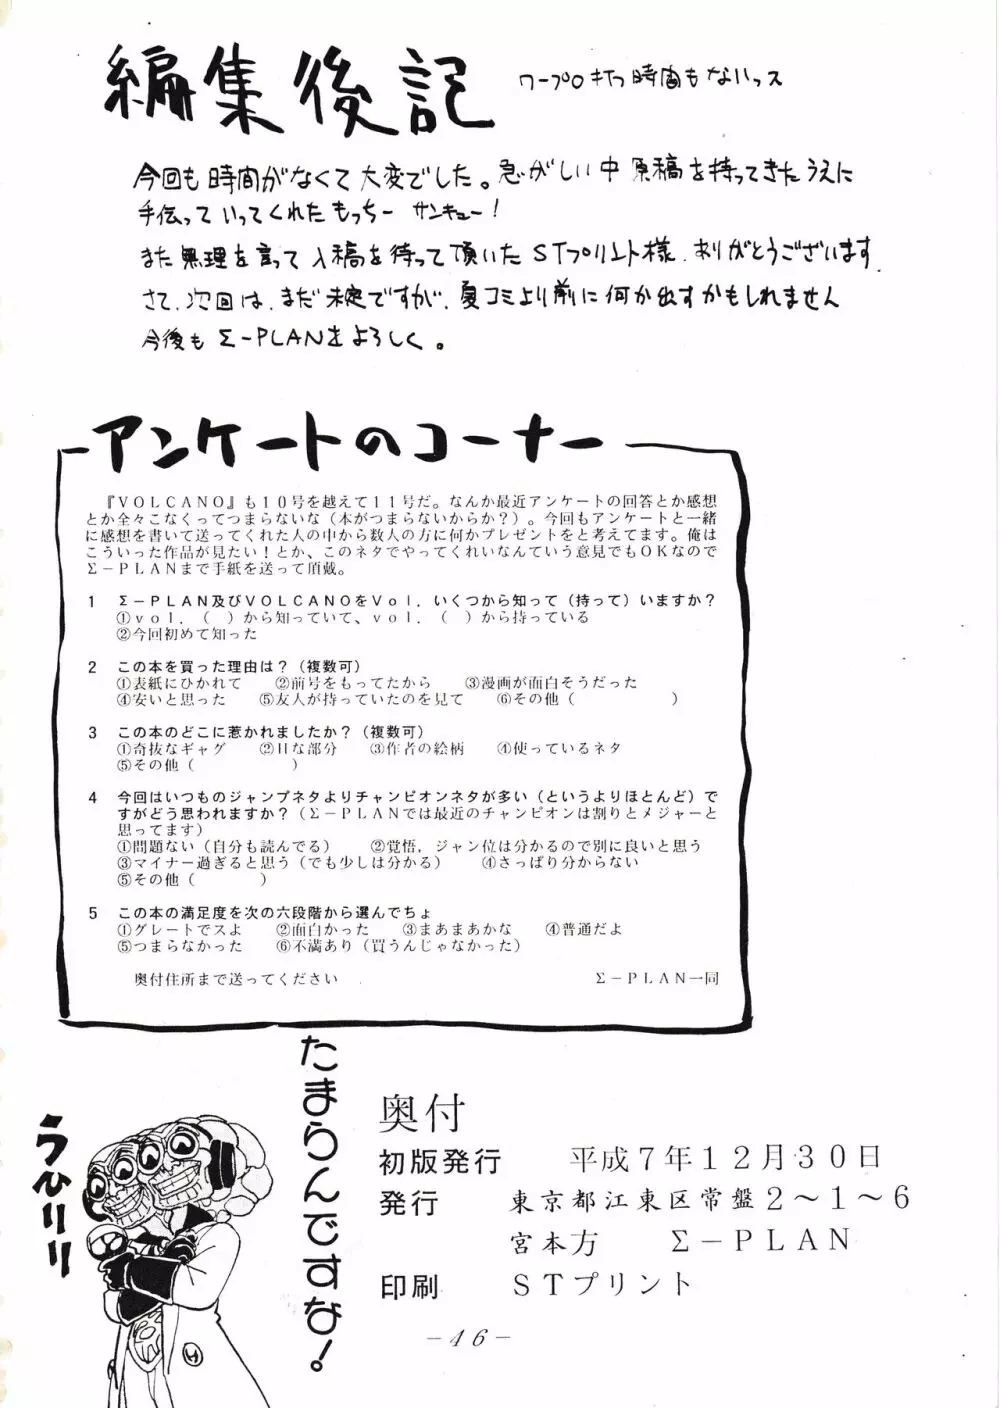 編集後記
ワープロ打つ時間もないっス
今回も時間がなくて大変でした。急がしい中原稿を持ってきたうえに
手伝っていってくれたもっちー サンキュー!
また無理を言って入稿を待って頂いたSTプリント様、ありがとうございます。
さて、次回は、まだ未定ですが、夏コミより前に何か出すかもしれません
今後もΣ-PLANをよろしく。
アンケートのコーナー
『VOLCANO』も10号を越えて11号だ。なんか最近アンケートの回答とか感想
とか全々こなくってつまらないな(本がつまらないからか?)。今回もアンケートと一緒
に感想を書いて送ってくれた人の中から数人の方に何かプレゼントをと考えてます。俺は
こういった作品が見たい!とか、このネタでやってくれいなんていう意見でもOKなので
Σ-PLANまで手紙を送って頂戴。
1 Σ-PLAN及びVOLCANOをVol.いくつから知って(持って)いますか?
①vol.( )から知っていて、vol.( )から持っている
②今回初めて知った
2 この本を買った理由は?(複数可)
①表紙にひかれて ②前号をもってたから ③漫画が面白そうだった
④安いと思った ⑤友人が持っていたのを見て ⑥その他( )
3 この本のどこに惹かれましたか?(複数可)
①奇抜なギャグ ②Hな部分 ③作者の絵柄 ④使っているネタ
⑤その他( )
4 今回はいつものジャンプネタよりチャンピオンネタが多い(というよりほとんど)で
すがどう思われますか?(Σ-PLANでは最近のチャンピオンは割りとメジャーと
思ってます)
①問題ない(自分も読んでる) ②覚悟,ジャン位は分かるので別に良いと思う
③マイナー過ぎると思う(でも少しは分かる) ④さっぱり分からない
⑤その他( )
5 この本の満足度を次の六段階から選んでちょ
①グレートでスよ ②面白かった ③まあまあかな ④普通だよ
⑤つまらなかった ⑥不満あり(買うんじゃなかった)
奥付住所まで送ってください Σ-PLAN一同
たまらんですな!
うひリリ
奥付
初版発行 平成7年12月30日
発行 東京都江東区常盤2〜1〜6
宮本方 Σ-PLAN
印刷 STプリント
-46-